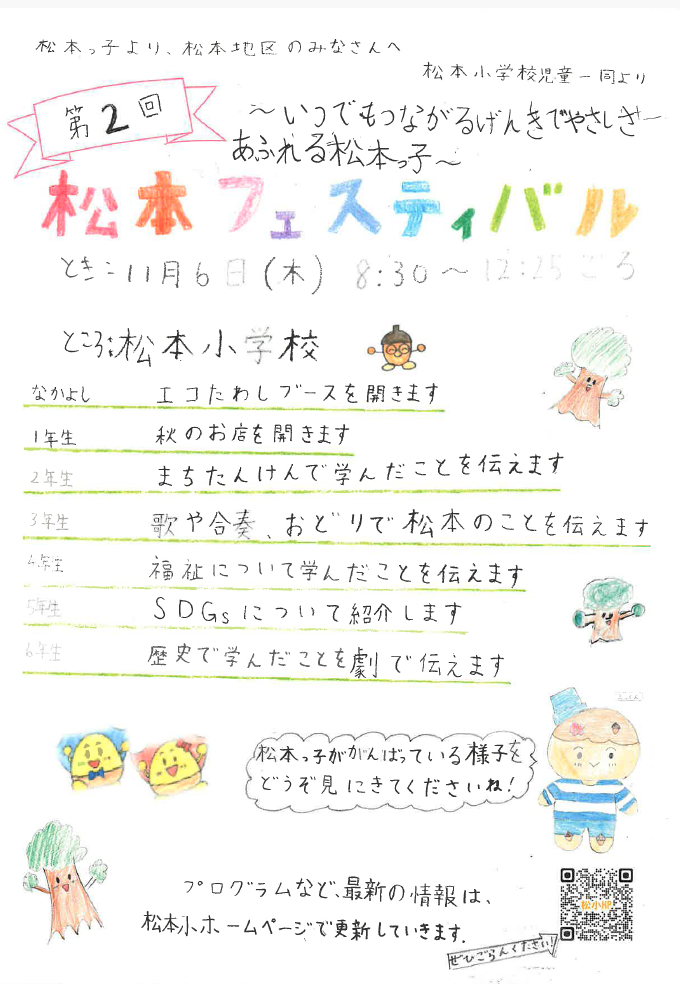 松本っ子より、松本地区のみなさんへ
松本小学校児童一同より
第2回
～いつでもつながるげんきでやさしさ
あふれる松本っ子～
松本フェスティバル
とき：11月6日(木) 8:30～12:25ごろ
ところ：松本小学校
なかよし エコたわしブースを開きます
1年生 秋のお店を開きます
2年生 まちたんけんで学んだことを伝えます
3年生 歌や合奏、おどりで松本のことを伝えます
4年生 福祉について学んだことを伝えます
5年生 SDGsについて紹介します
6年生 歴史で学んだことを劇で伝えます
松本っ子ががんばっている様子を
どうぞ見にきてくださいね！
プログラムなど、最新の情報は、
松本小ホームページで更新していきます.
松小HP
ぜひごらんください！